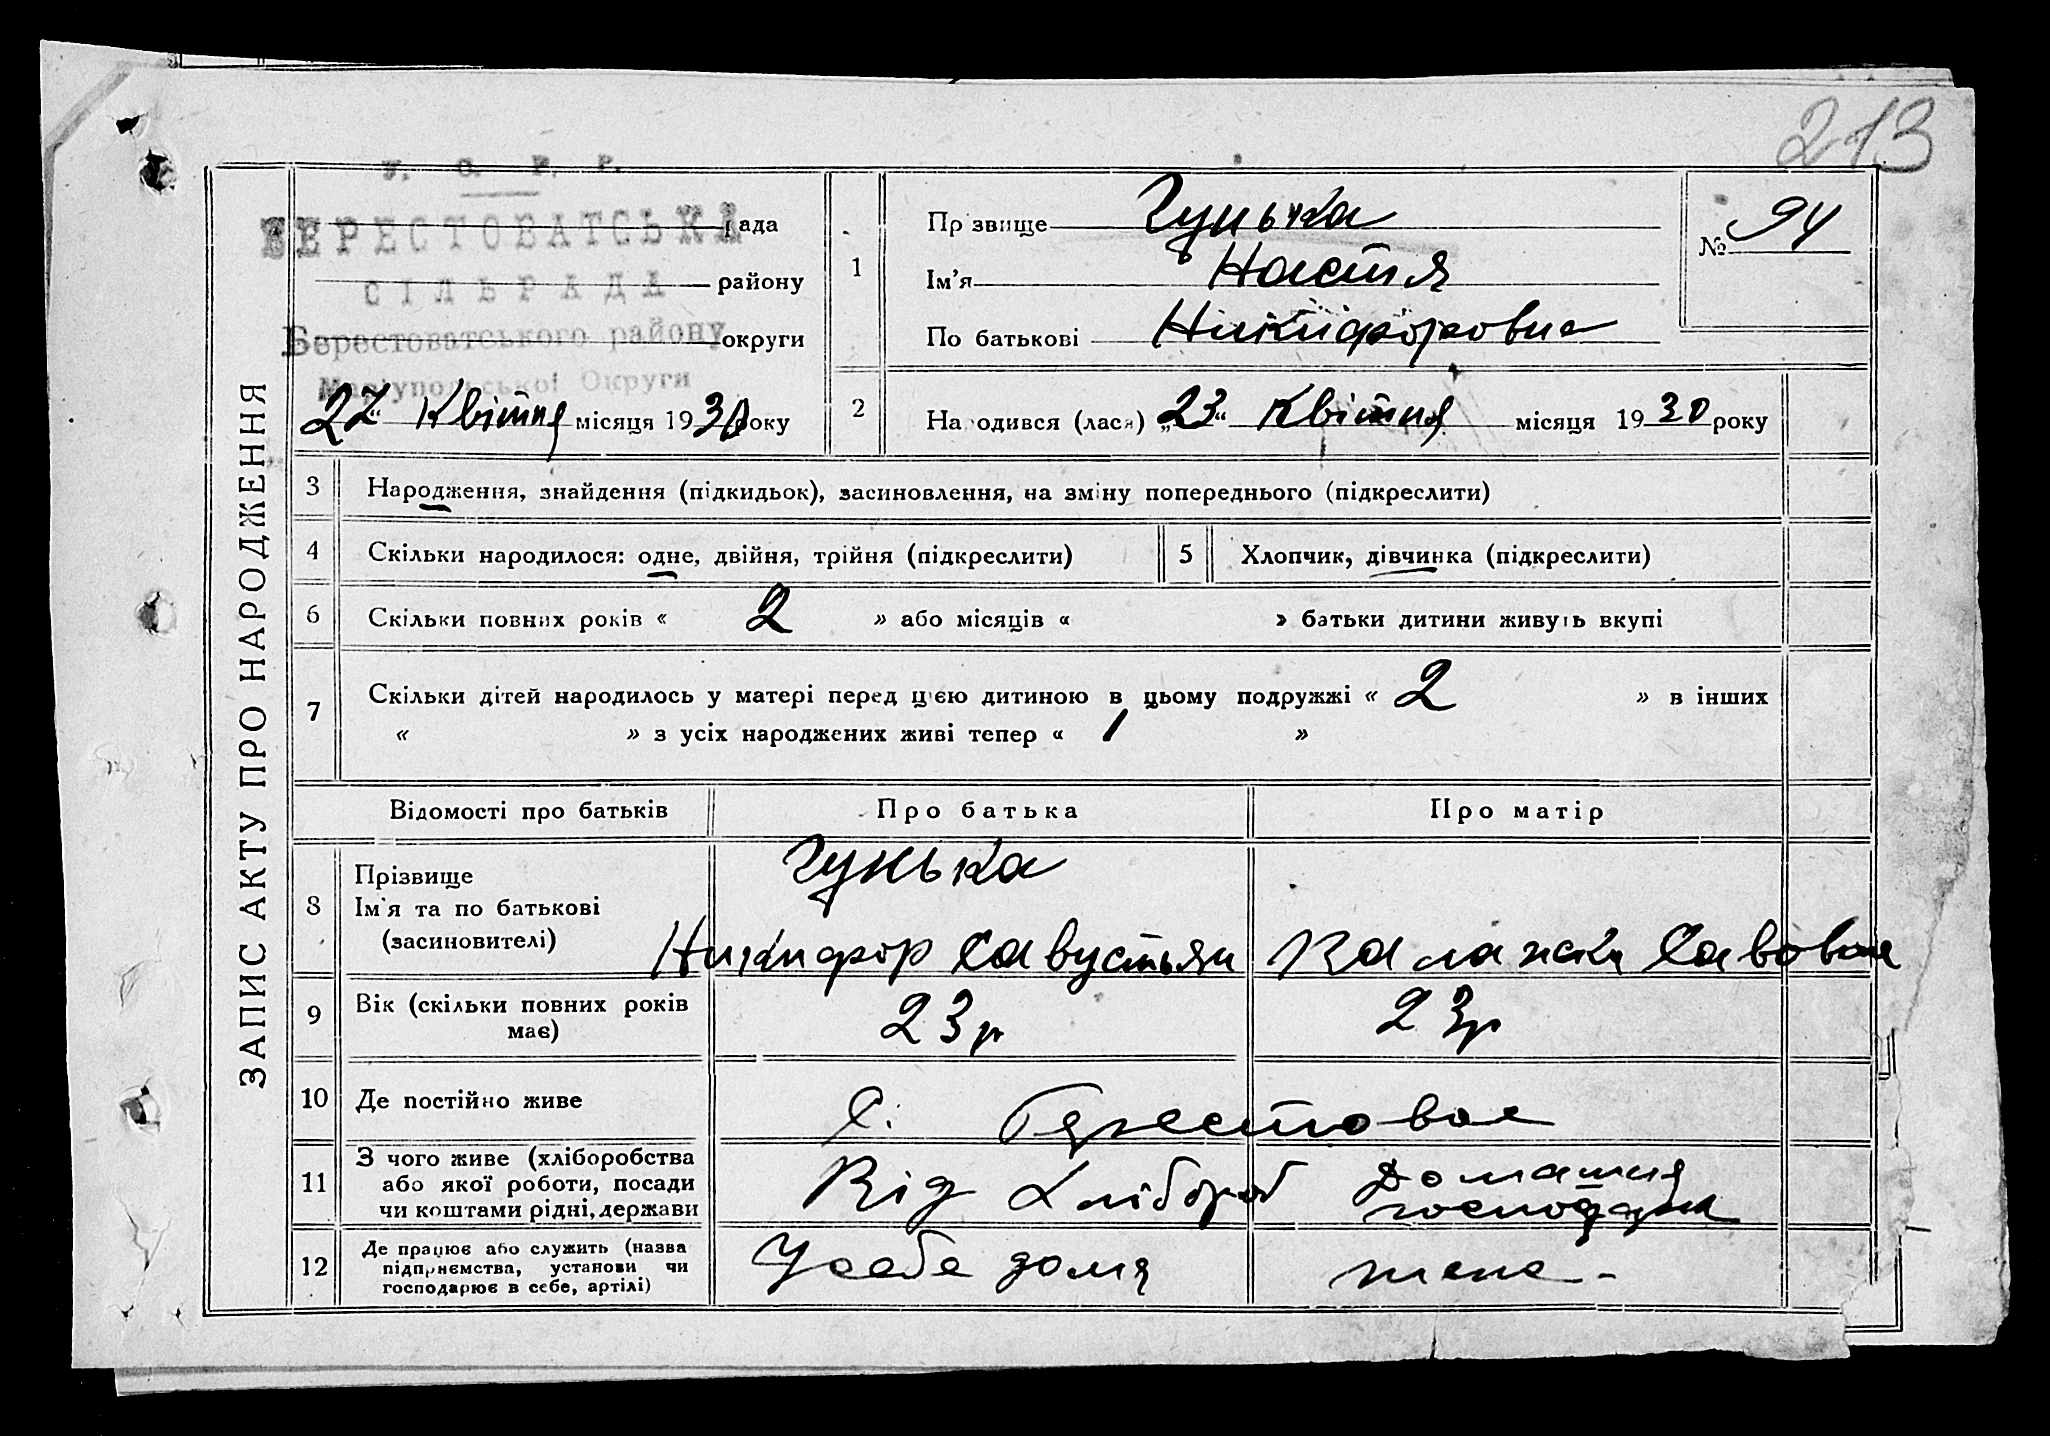 213
У. С. Р. Р.
БЕРЕСТОВАТСЬКА рада
СІЛЬРАДА району
Берестоватського району округи
Маріупольської Округи
27 Квітня місяця 1930 року
ЗАПИС АКТУ ПРО НАРОДЖЕННЯ
1 Прізвище Гунька
Ім'я Настя
По батькові Никифоровна
№ 94
2 Народився (лася) „23“ Квітня місяця 1930 року
3 Народження, знайдення (підкидьок), засиновлення, на зміну попереднього (підкреслити)
4 Скільки народилося: одне, двійня, трійня (підкреслити) 5 Хлопчик, дівчинка (підкреслити)
6 Скільки повних років « 2 » або місяців « » батьки дитини живуть вкупі
7 Скільки дітей народилось у матері перед цією дитиною в цьому подружжі « 2 » в інших
« » з усіх народжених живі тепер « 1 »
Відомості про батьків Про батька Про матір
8 Прізвище Гунька
Ім'я та по батькові
(засиновителі) Никифор Савустьян Савовна
9 Вік (скільки повних років має) 23 р 23 р
10 Де постійно живе С. Берестовое
11 З чого живе (хліборобства
або якої роботи, посади
чи коштами рідні, держави Від Хлібороб Домашня
господарка
12 Де працює або служить (назва
підприємства, установи чи
господарює в себе, артілі) У себе дома